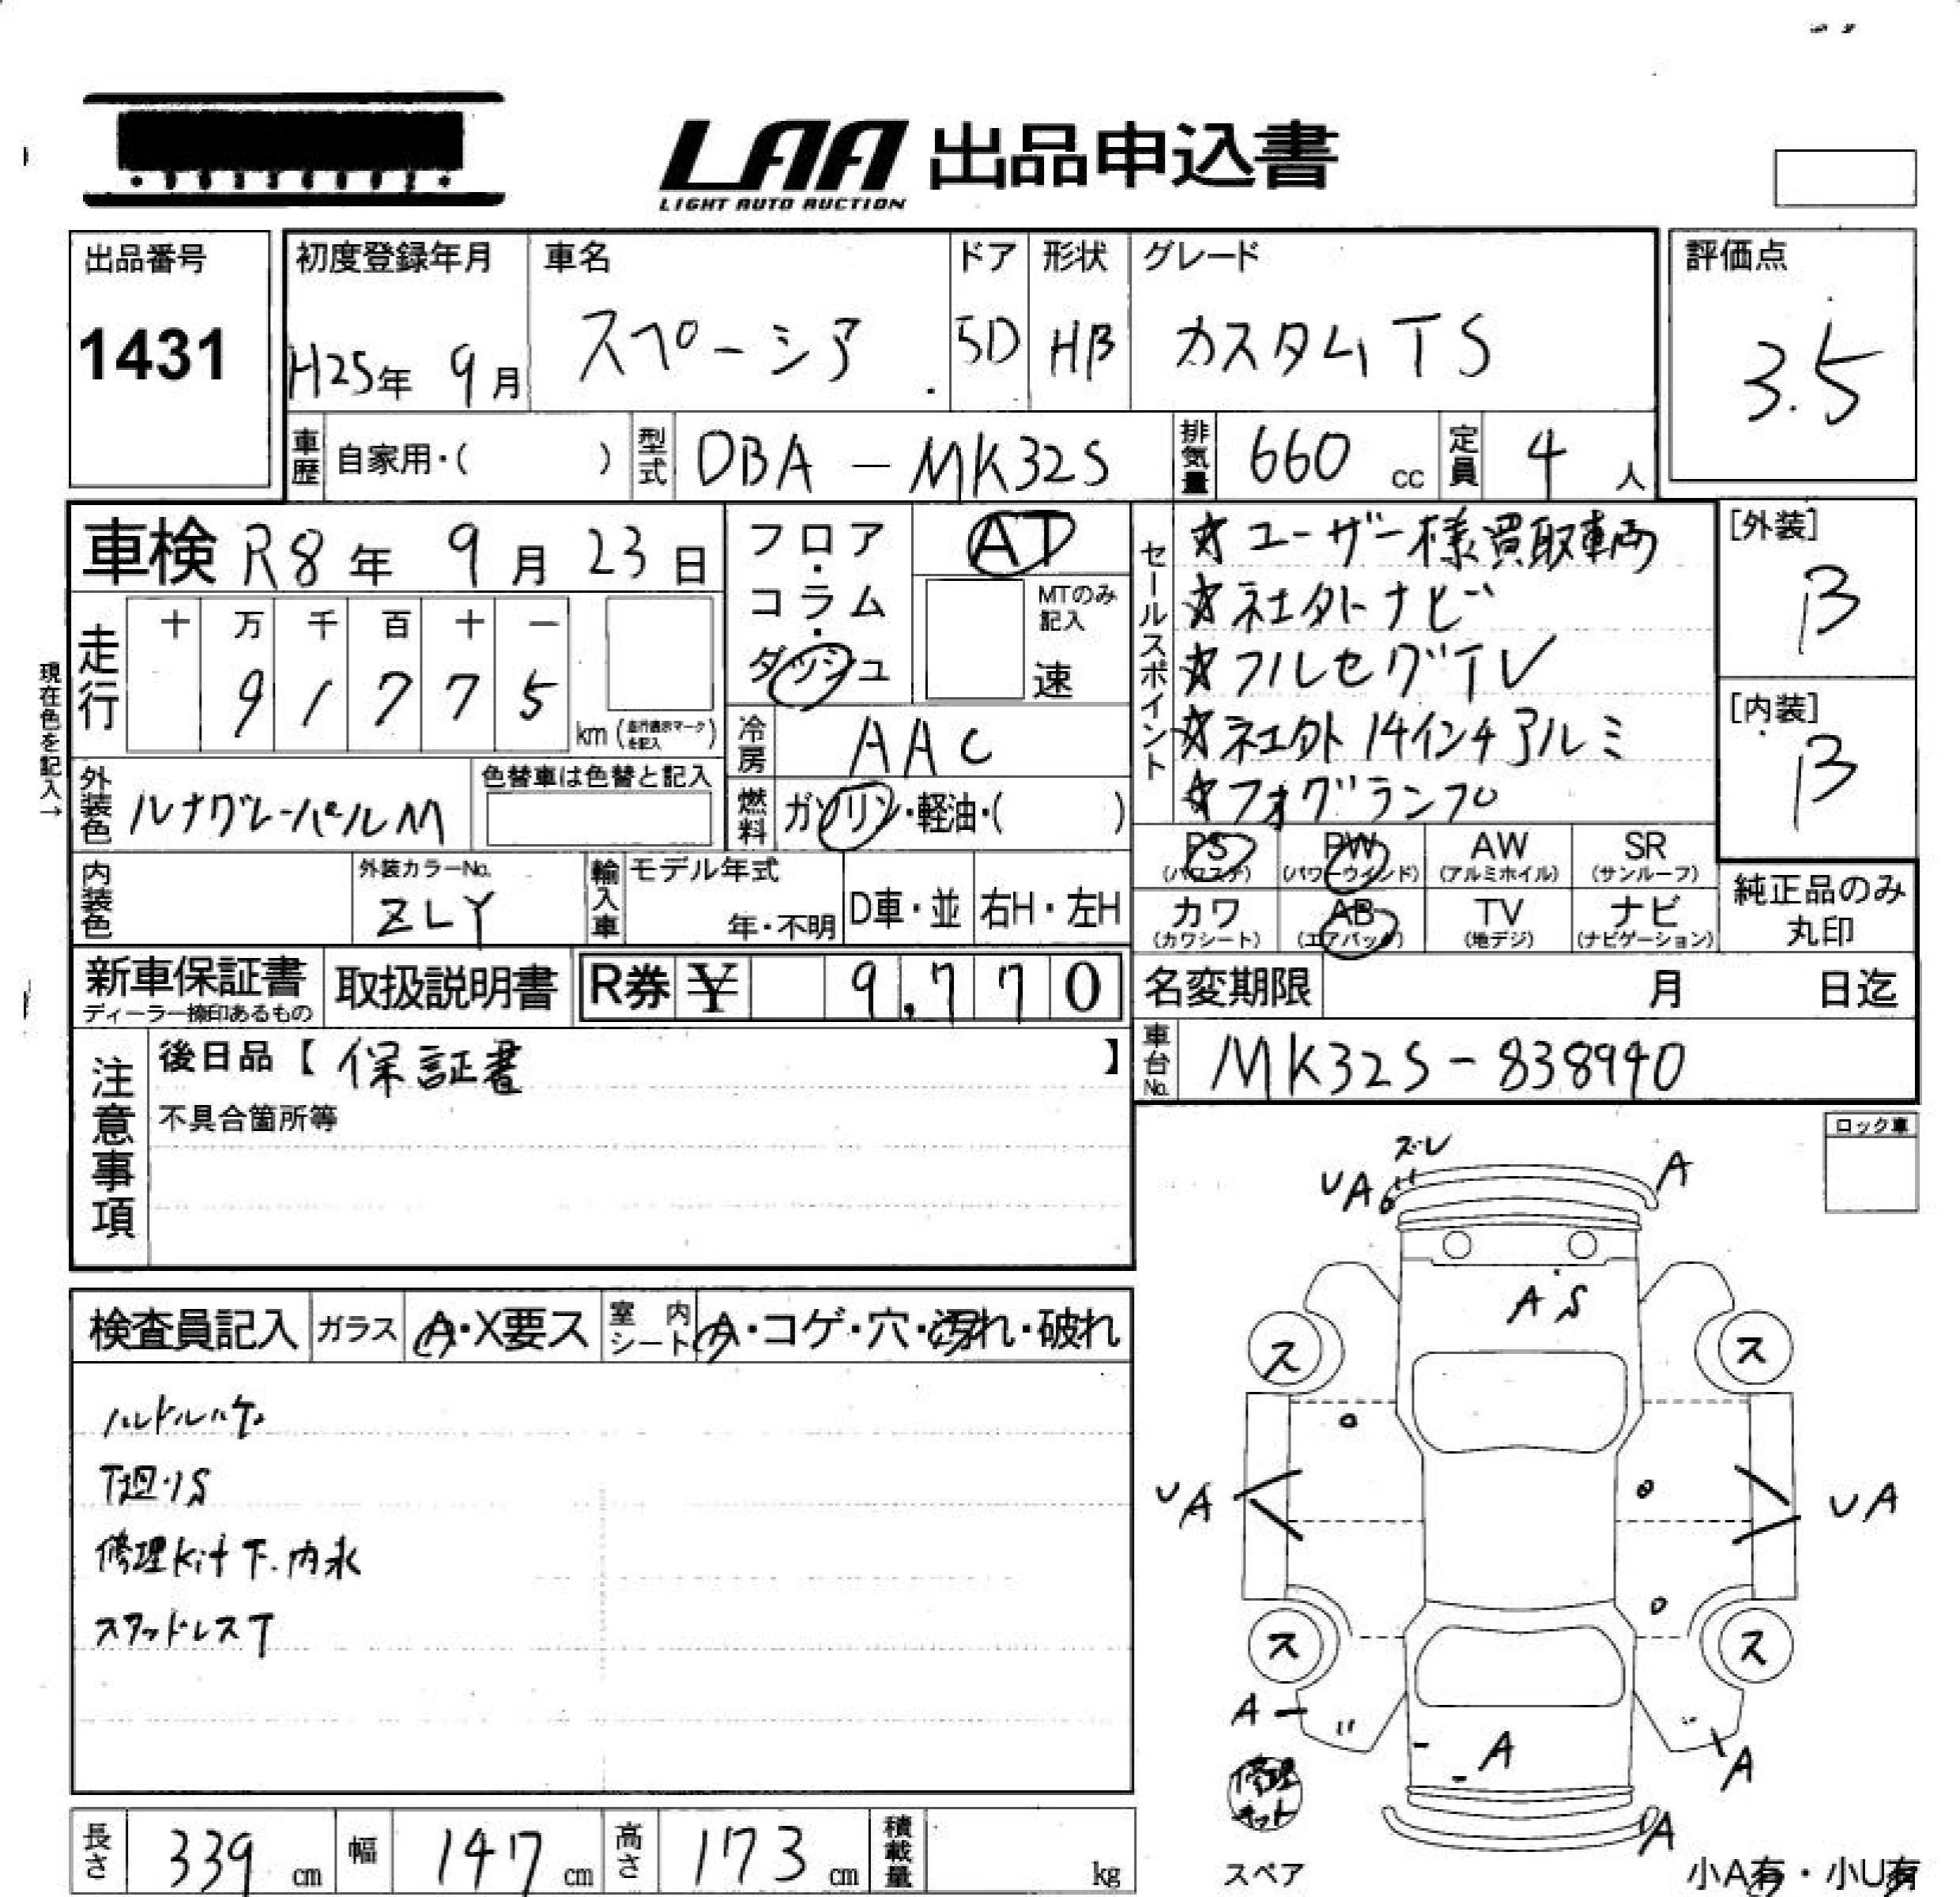 LAA 出品申込書
LIGHT AUTO AUCTION
出品番号
1431
初度登録年月
H25年 9月
車名
スペーシア
ドア
5D
形状
HB
グレード
カスタムTS
評価点
3.5
車歴 自家用・( )
型式 DBA-MK32S
排気量 660 cc
定員 4 人
車検 R8年 9月 23日
現在色を記入→
走行
十 万 千 百 十 一
9 1 7 7 5
km (走行表示マークを記入)
フロア・コラム・ダッシュ
AT
MTのみ記入
速
冷房 AAC
燃料 ガソリン・軽油・( )
セールスポイント
☆ユーザー様買取車両
☆社外ナビ
☆フルセグTV
☆社外14インチアルミ
☆フォグランプ
[外装]
B
[内装]
B
外装色 ルナグレーパールM
色替車は色替と記入
内装色
外装カラーNo.
ZLY
輸入車
モデル年式
年・不明
D車・並
右H・左H
PS
(パワステ)
PW
(パワーウインド)
AW
(アルミホイル)
SR
(サンルーフ)
カワ
(カワシート)
AB
(エアバッグ)
TV
(地デジ)
ナビ
(ナビゲーション)
純正品のみ
丸印
新車保証書
ディーラー捺印あるもの
取扱説明書
R券 ¥ 9.770
名変期限 月 日迄
車台No. MK32S-838940
注意事項
後日品【 保証書 】
不具合箇所等
ロック車
検査員記入
ガラス A・X要ス
室内シート A・コゲ・穴・汚れ・破れ
ハンドルハゲ
修理kit下.内水
スタッドレスT
ズレ
UA
A
A S
ス
ス
UA
UA
ス
ス
A
A
A
修理キット
UA
スペア
小A有・小U有
長さ 339 cm
幅 147 cm
高さ 173 cm
積載量 kg